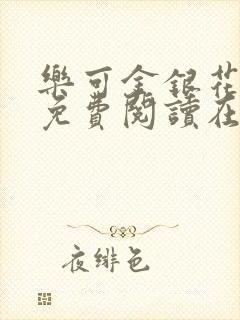 樂可金銀花
免費閱讀在
夜緋色